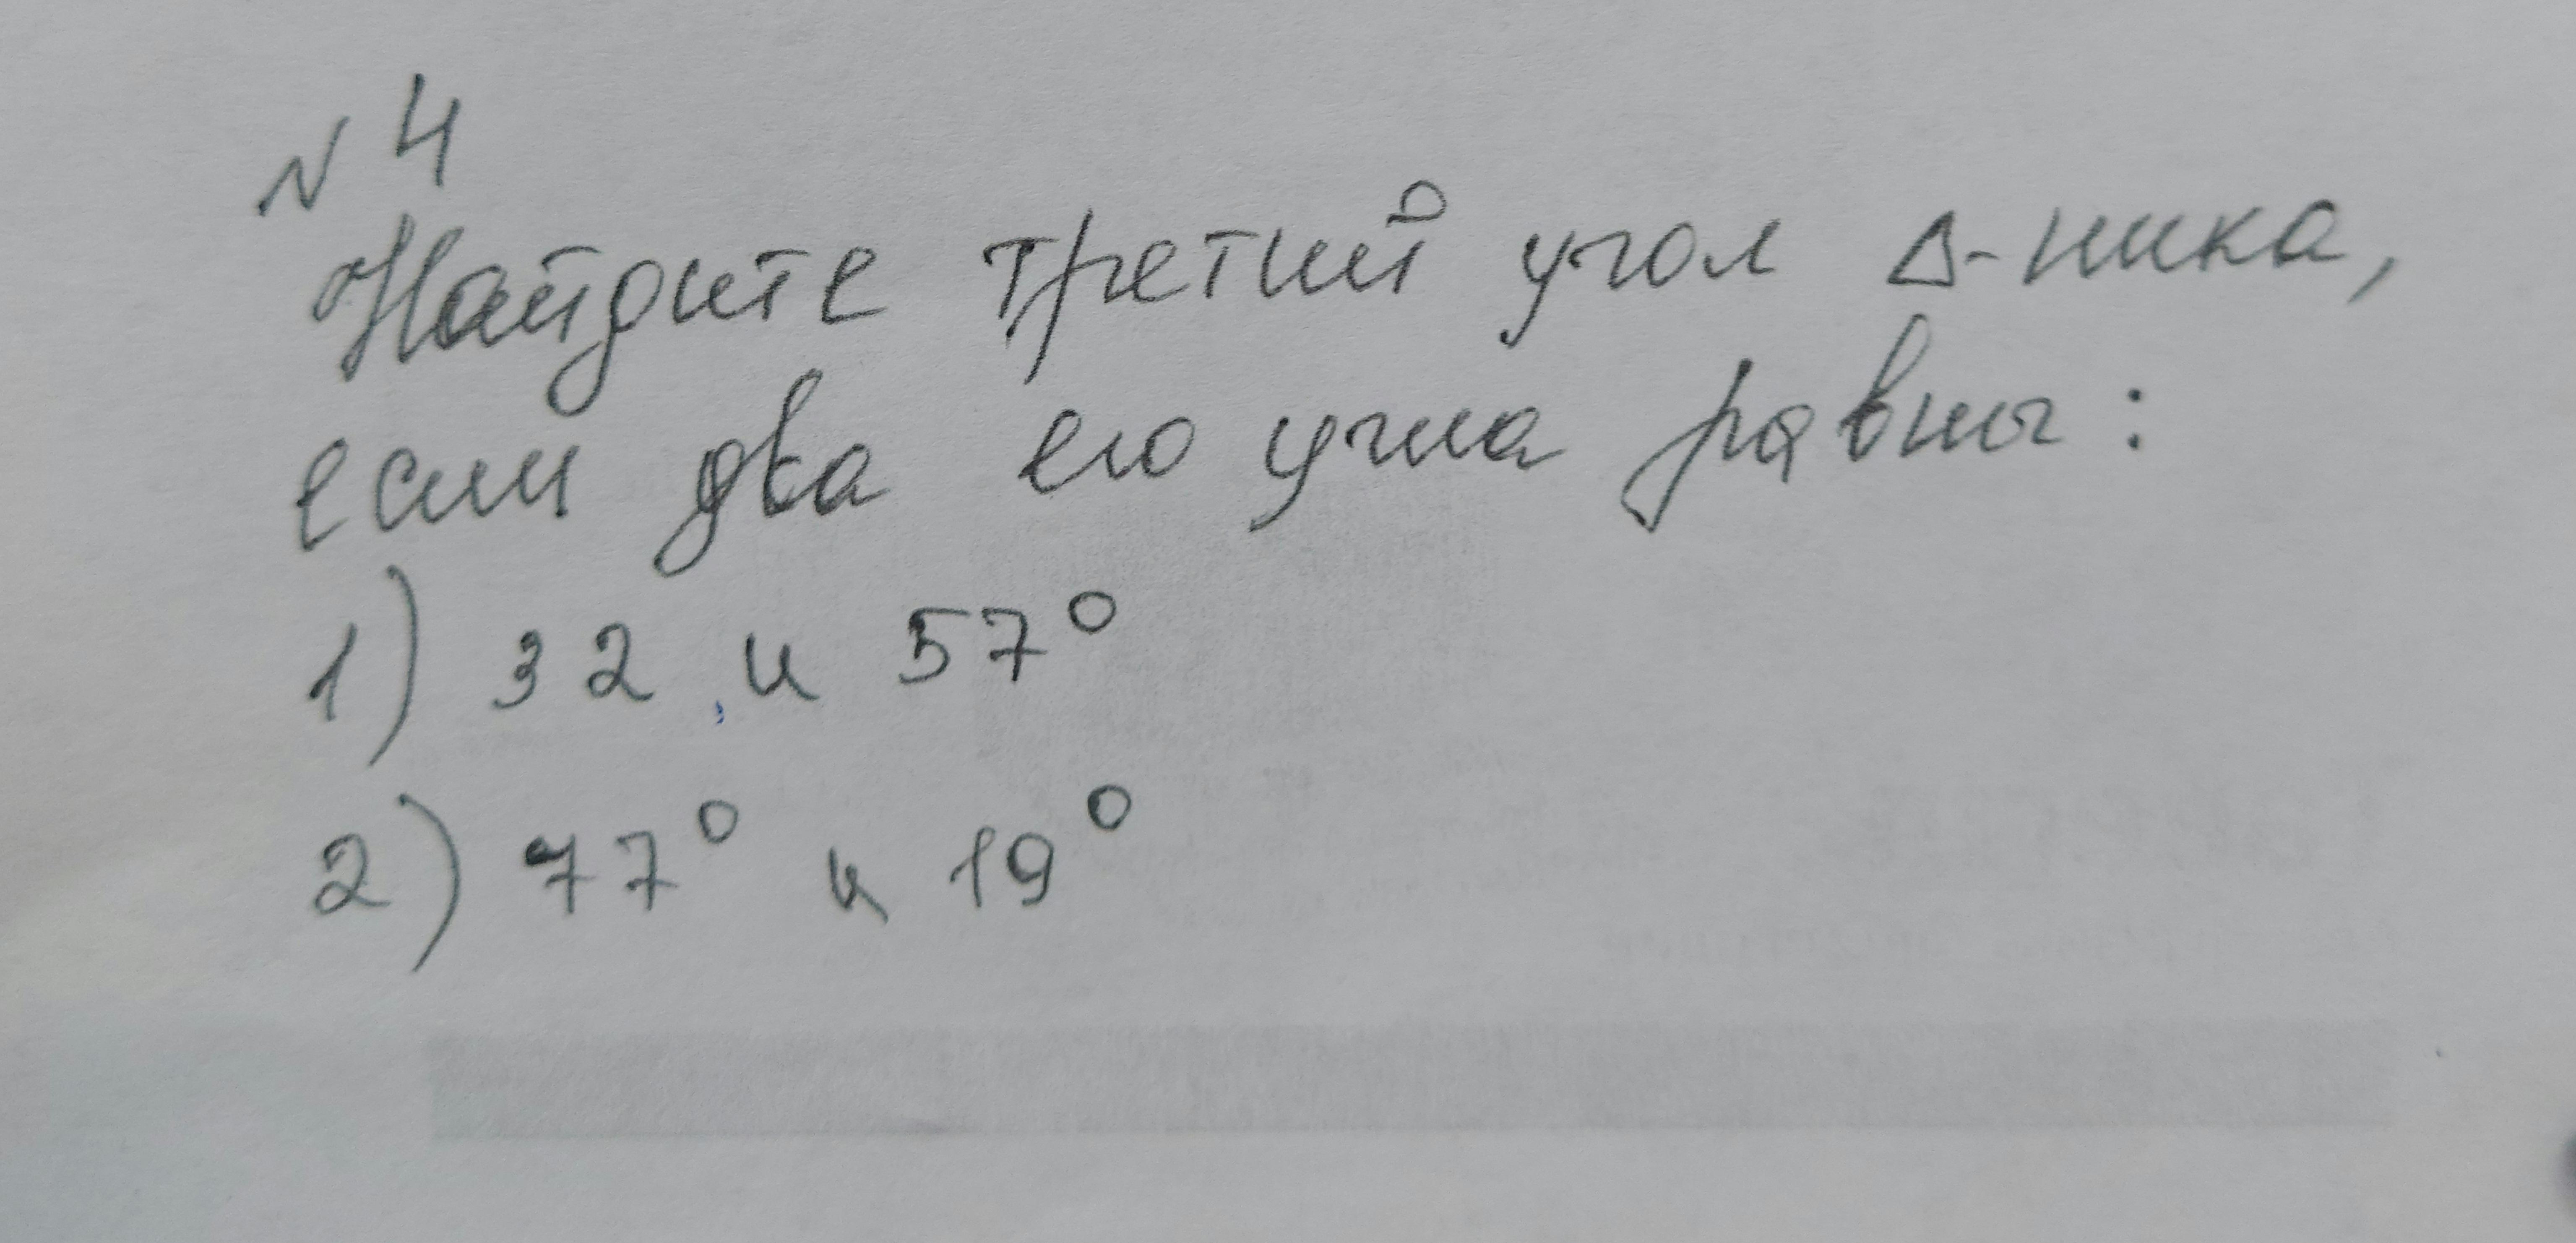 №4
Найдите третий угол Δ-ника,
если два его угла равны:
1) 32 и 57°
2) 77° и 19°